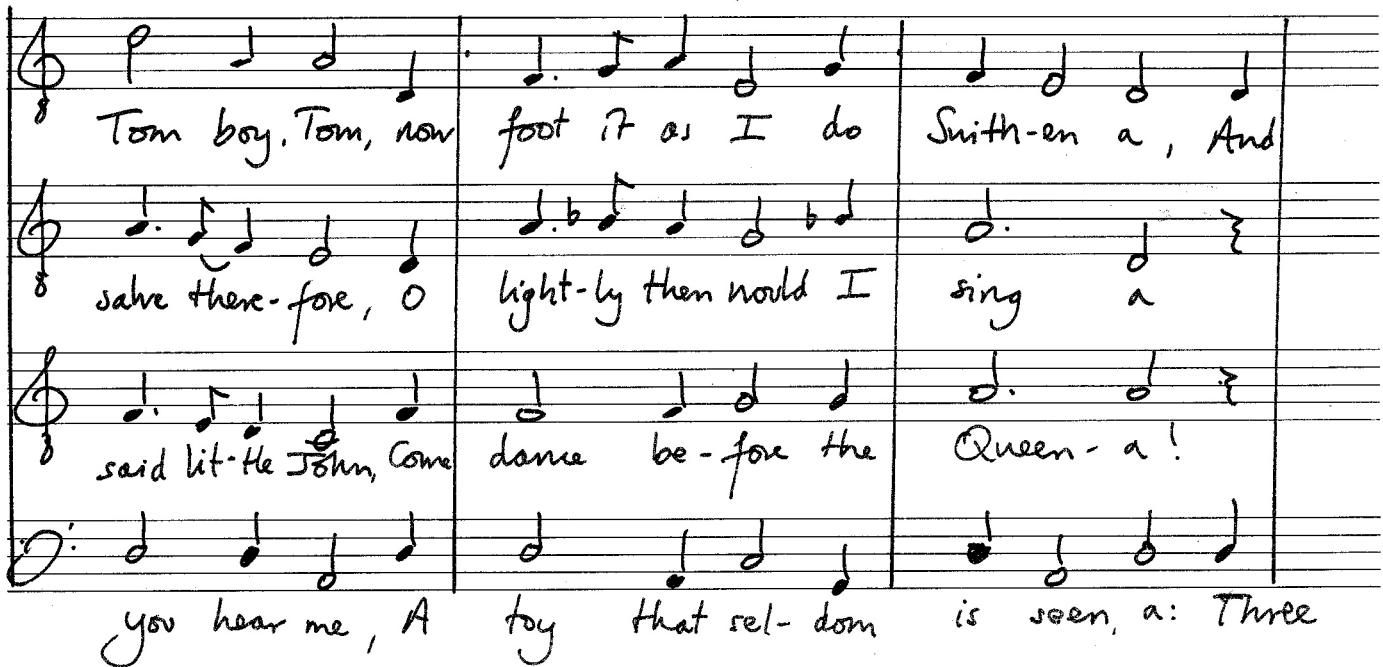 Tom boy, Tom, now foot it as I do Swith-en a, And
salve there-fore, O light-ly then would I sing a
said lit-tle John, Come dance be-fore the Queen-a!
you hear me, A toy that sel-dom is seen, a: Three